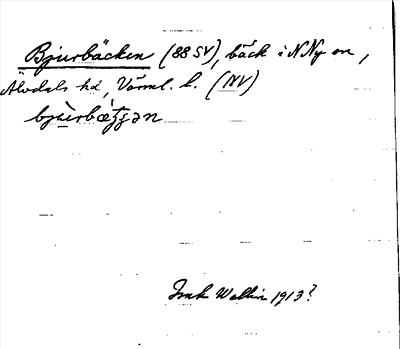 Bjurbäcken (88 SV), bäck i N Ny sn,
Älvdals hd, Värml. l. (NV)
Wallin 1913?